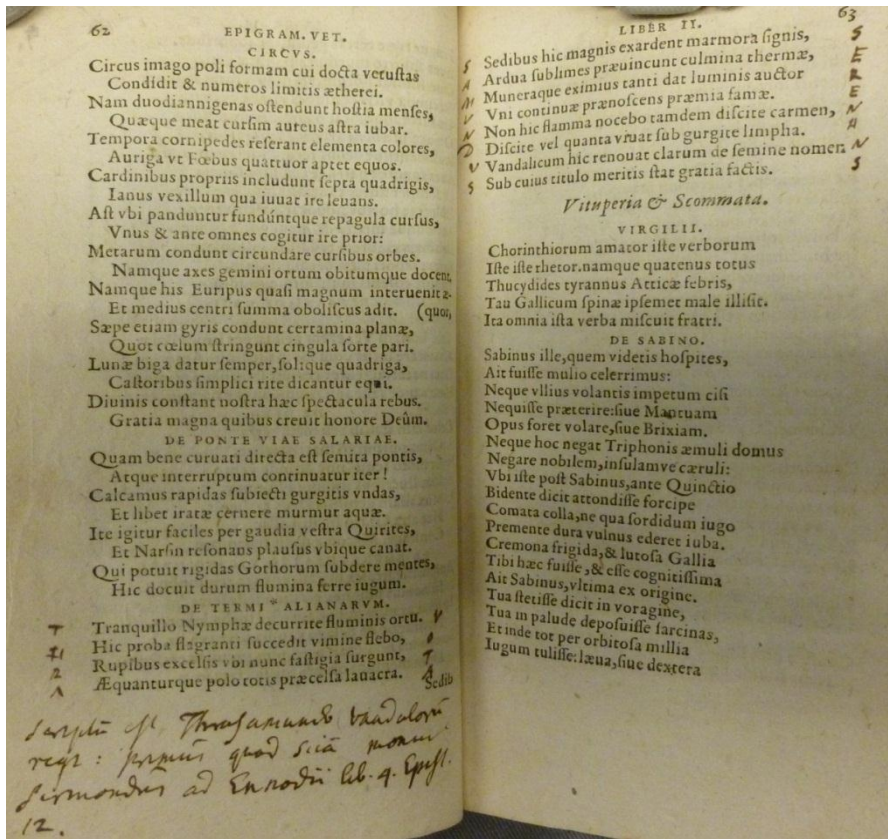 62
EPIGRAM. VET.
CIRCVS.
Circus imago poli formam cui docta vetuſtas
Condidit & numeros limitis ætherei.
Nam duodiannigenas oſtendunt hoſtia menſes,
Quæque meat curſim aureus aſtra iubar.
Tempora cornipedes referant elementa colores,
Auriga vt Fœbus quattuor aptet equos.
Cardinibus propriis includunt ſepta quadrigis,
Ianus vexillum qua iuuat ire leuans.
Aſt vbi panduntur fundúntque repagula curſus,
Vnus & ante omnes cogitur ire prior:
Metarum condunt circundare curſibus orbes.
Namque axes gemini ortum obitumque docent,
Namque his Euripus quaſi magnum interuenit æ-
Et medius centri ſumma oboliſcus adit. (quor,
Sæpe etiam gyris condunt certamina planæ,
Quot cœlum ſtringunt cingula ſorte pari.
Lunæ biga datur ſemper, ſolique quadriga,
Caſtoribus ſimplici rite dicantur equi.
Diuinis conſtant noſtra hæc ſpectacula rebus.
Gratia magna quibus creuit honore Deûm.
DE PONTE VIAE SALARIAE.
Quam bene curuati directa eſt ſemita pontis,
Atque interruptum continuatur iter!
Calcamus rapidas ſubiecti gurgitis vndas,
Et libet iratæ cernere murmur aquæ.
Ite igitur faciles per gaudia veſtra Quirites,
Et Narſin reſonans plauſus vbique canat.
Qui potuit rigidas Gothorum ſubdere mentes,
Hic docuit durum flumina ferre iugum.
DE TERMI* ALIANARVM.
T Tranquillo Nymphæ decurrite fluminis ortu. V
H Hic proba flagranti ſuccedit vimine flebo, O
R Rupibus excelſis vbi nunc faſtigia ſurgunt, T
A Æquanturque polo totis præcelſa lauacra. A
Sedib
Scriptũ eſt Thraſamundo Vandalorũ
regi: primus quod sciã monuit
Sirmondus ad Ennodii lib. 4. Epiſt.
12.
LIBER II.
63
S Sedibus hic magnis exardent marmora ſignis, S
A Ardua ſublimes præuincunt culmina thermæ, E
M Muneraque eximius tanti dat luminis auctor R
V Vni continuæ prænoſcens præmia famæ. E
N Non hic flamma nocebo tamdem diſcite carmen, N
D Diſcite vel quanta viuat ſub gurgite limpha. A
V Vandalicum hic renouat clarum de ſemine nomen N
S Sub cuius titulo meritis ſtat gratia factis. S
Vituperia & Scommata.
VIRGILII.
Chorinthiorum amator iſte verborum
Iſte iſte rhetor. namque quatenus totus
Thucydides tyrannus Atticæ febris,
Tau Gallicum ſpinæ ipſemet male illiſit.
Ita omnia iſta verba miſcuit fratri.
DE SABINO.
Sabinus ille, quem videtis hoſpites,
Ait fuiſſe mulio celerrimus:
Neque vllius volantis impetum ciſi
Nequiſſe præterire: ſiue Mantuam
Opus foret volare, ſiue Brixiam.
Neque hoc negat Triphonis æmuli domus
Negare nobilem, inſulamve cæruli:
Vbi iſte poſt Sabinus, ante Quinctio
Bidente dicit attondiſſe forcipe
Comata colla, ne qua ſordidum iugo
Premente dura vulnus ederet iuba.
Cremona frigida, & lutoſa Gallia
Tibi hæc fuiſſe, & eſſe cognitiſſima
Ait Sabinus, vltima ex origine.
Tua ſtetiſſe dicit in voragine,
Tua in palude depoſuiſſe ſarcinas,
Et inde tot per orbitoſa millia
Iugum tuliſſe: læua, ſiue dextera